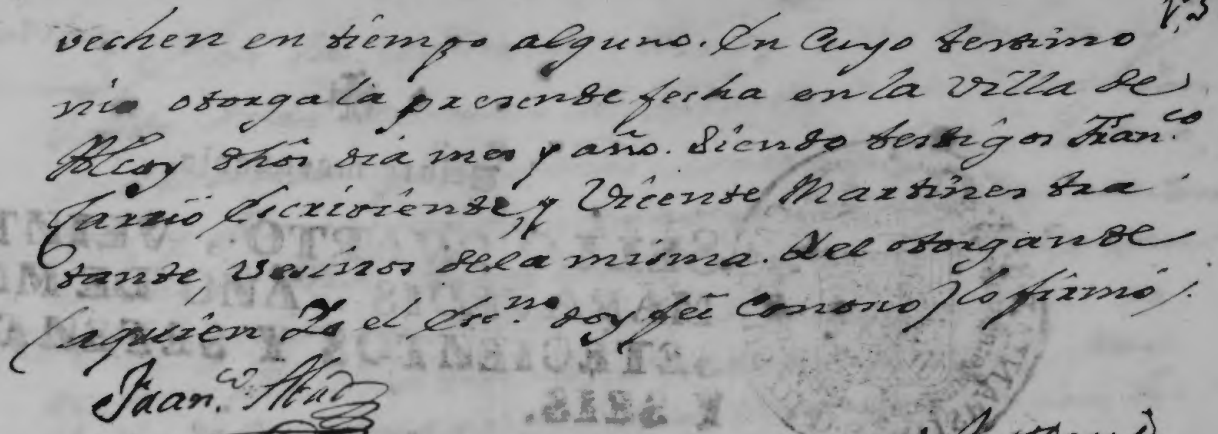 vechen en tiempo alguno. En Cuyo testimo
nio otorga la presente fecha en la Villa de
Alcoy dhos dia mes y año. Siendo testigos Fran.co
Carrió Escriviente, y Vicente Martines tra
tante, Vecinos dela misma. Y el otorgante
(aquien Yo el Esc.no doy feé Conosco) lo firmó.
Fran.co